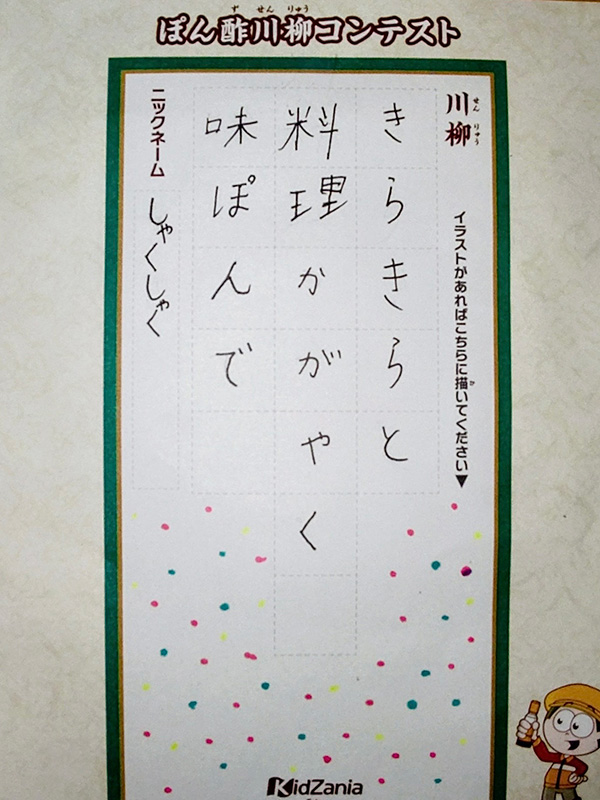 ぽん酢川柳コンテスト
ず せん りゅう
川柳
せん りゅう
イラストがあればこちらに描いてください▼
か
きらきらと
料理かがやく
味ぽんで
ニックネーム
しゃくしゃく
KidZania